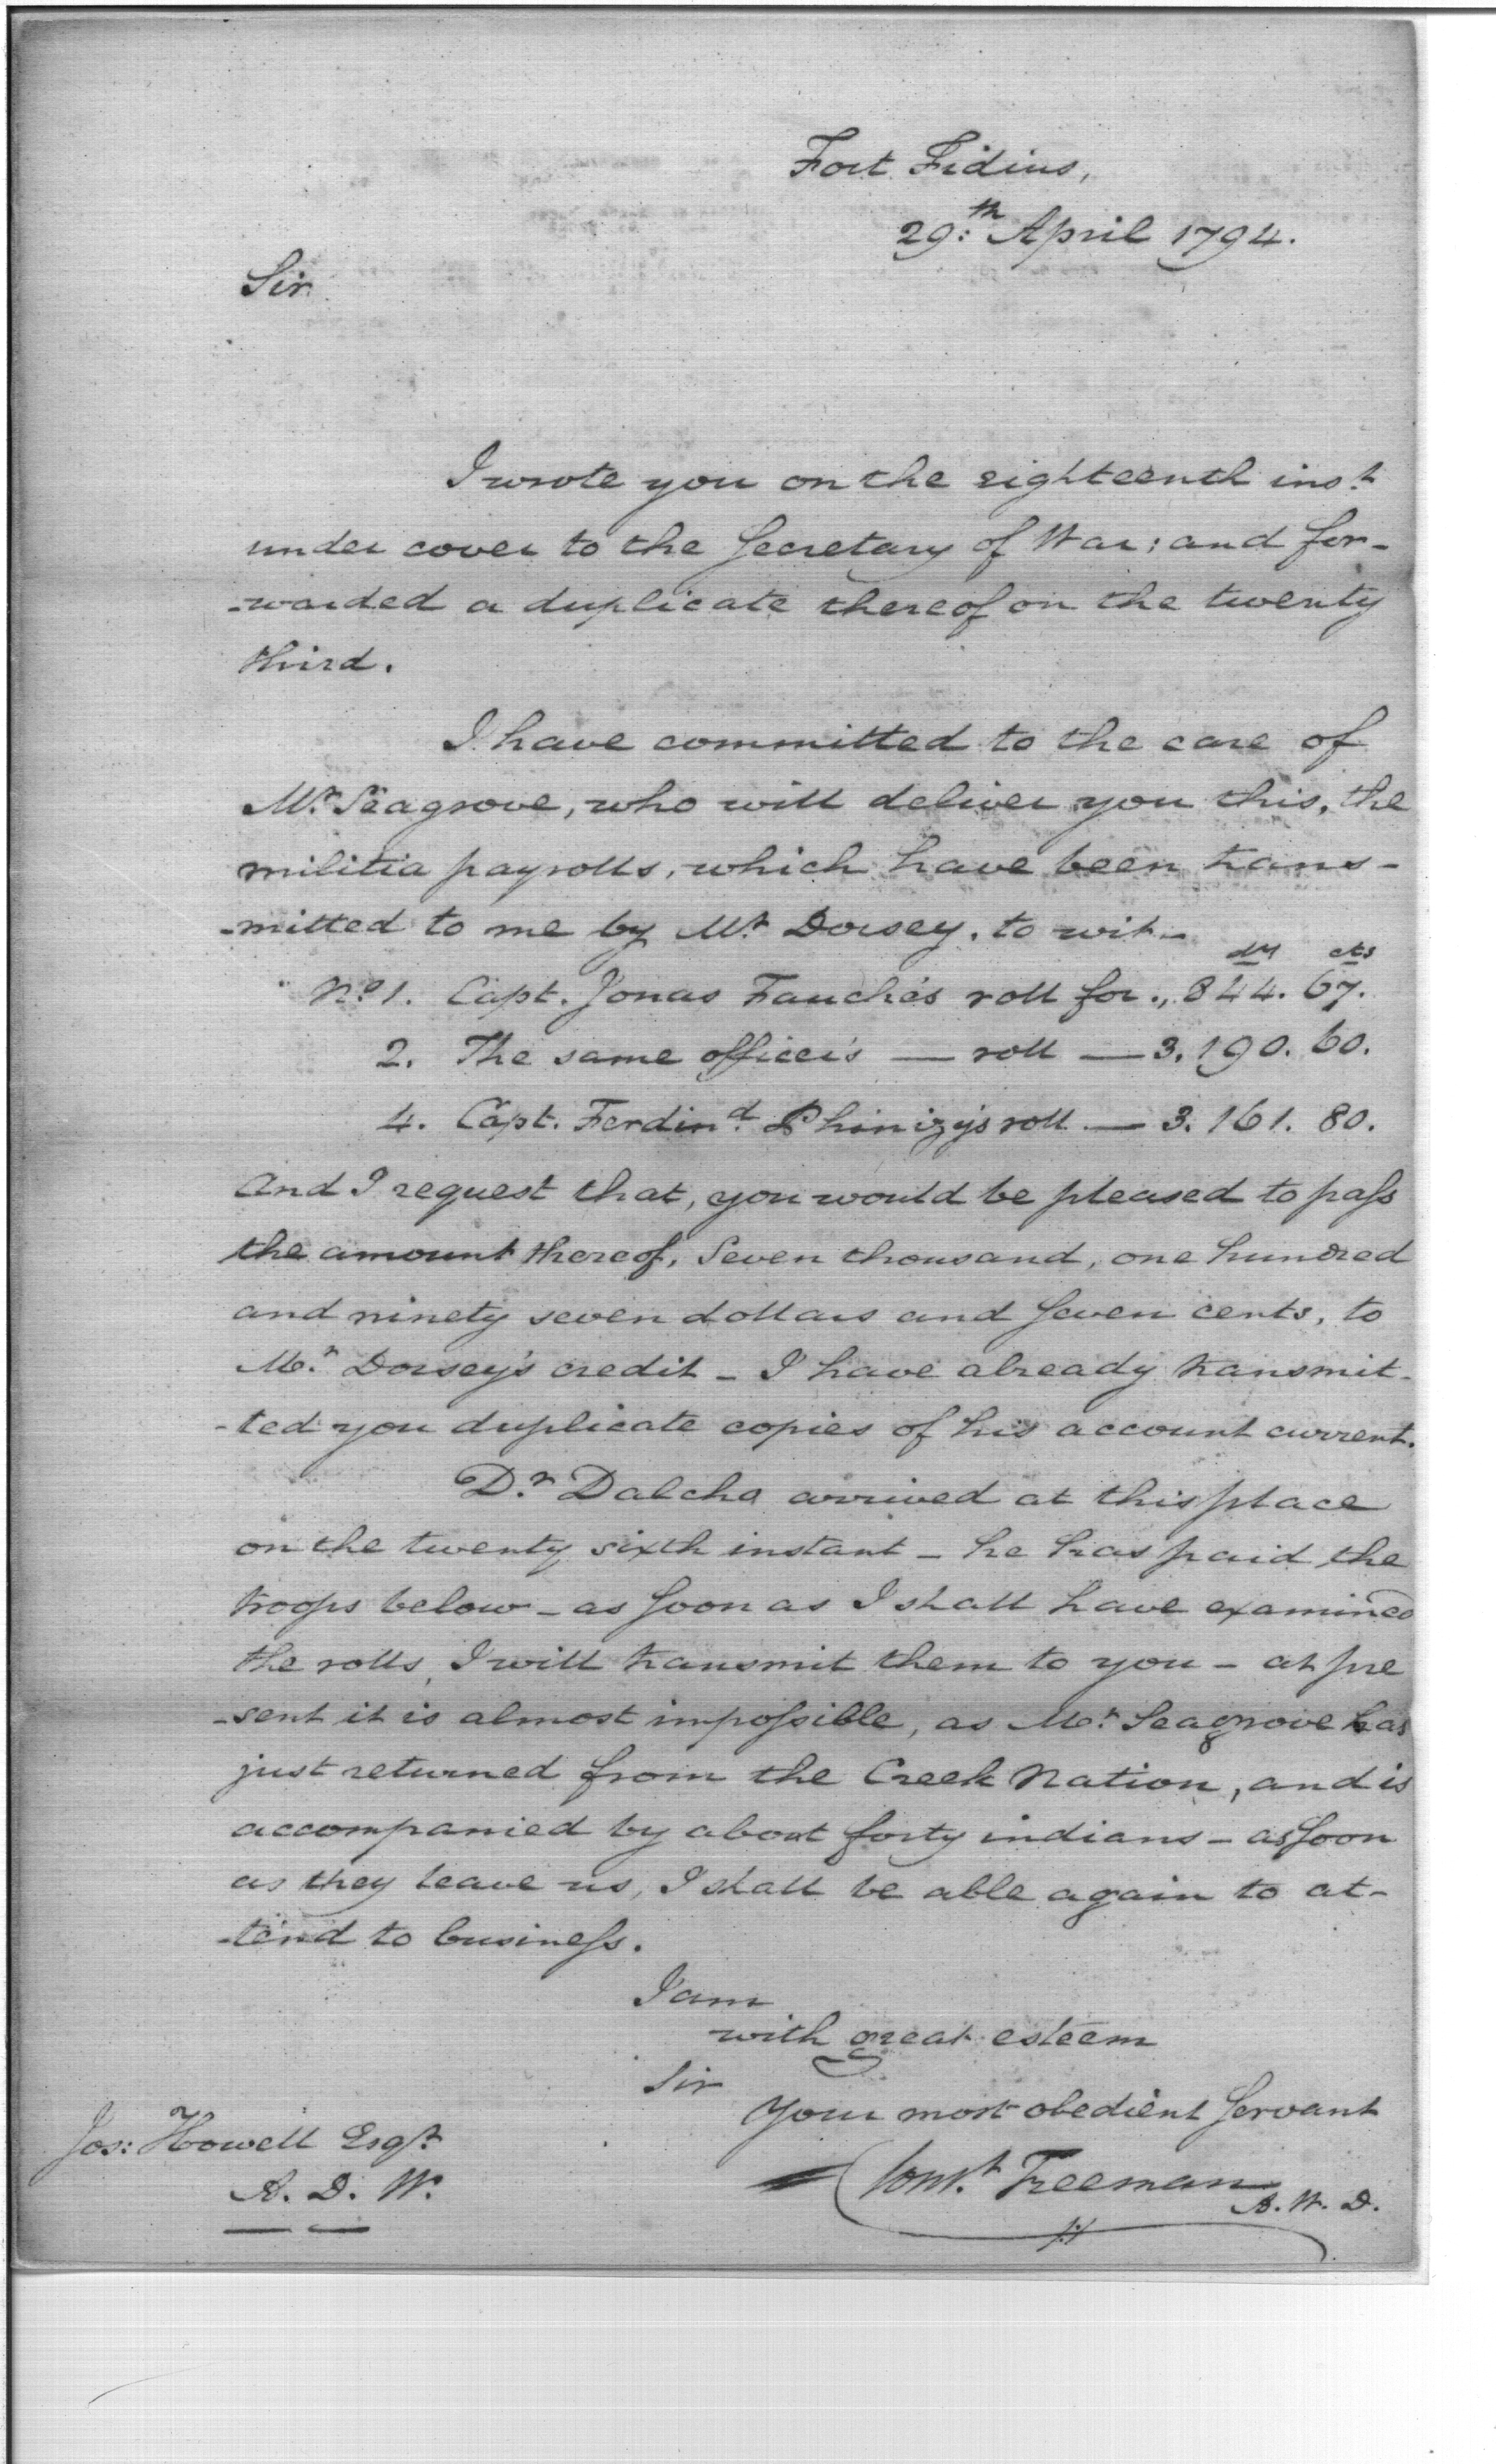 Fort Fidius,
29:th April 1794.
Sir
I wrote you on the eighteenth inst
under cover to the Secretary of War; and for-
-warded a duplicate thereof on the twenty
third.
I have committed to the care of
Mr. Seagrove, who will deliver you this, the
militia payrolls, which have been trans-
-mitted to me by Mr. Dorsey, to wit-
dlls cts
No. 1. Capt. Jonas Fauche's roll for ,, 844. 67.
2. The same officer's — roll — 3.190. 60.
4. Capt. Ferdind. Phinizy's roll — 3.161. 80.
And I request that, you would be pleased to pass
the amount thereof, Seven thousand, one hundred
and ninety seven dollars and Seven cents, to
Mr. Dorsey's credit - I have already transmit-
-ted you duplicate copies of his account current.
Dr. Dalcho arrived at this place
on the twenty sixth instant - he has paid the
troops below - as soon as I shall have examined
the rolls, I will transmit them to you - at pre
-sent it is almost impossible, as Mr. Seagrove has
just returned from the Creek Nation, and is
accompanied by about forty indians - as soon
as they leave us, I shall be able again to at-
-tend to business.
I am
with great esteem
Sir
Your most obedient Servant
Jos: Howell Esqr.
A. D. W.
Const. Freeman
A. W. D.